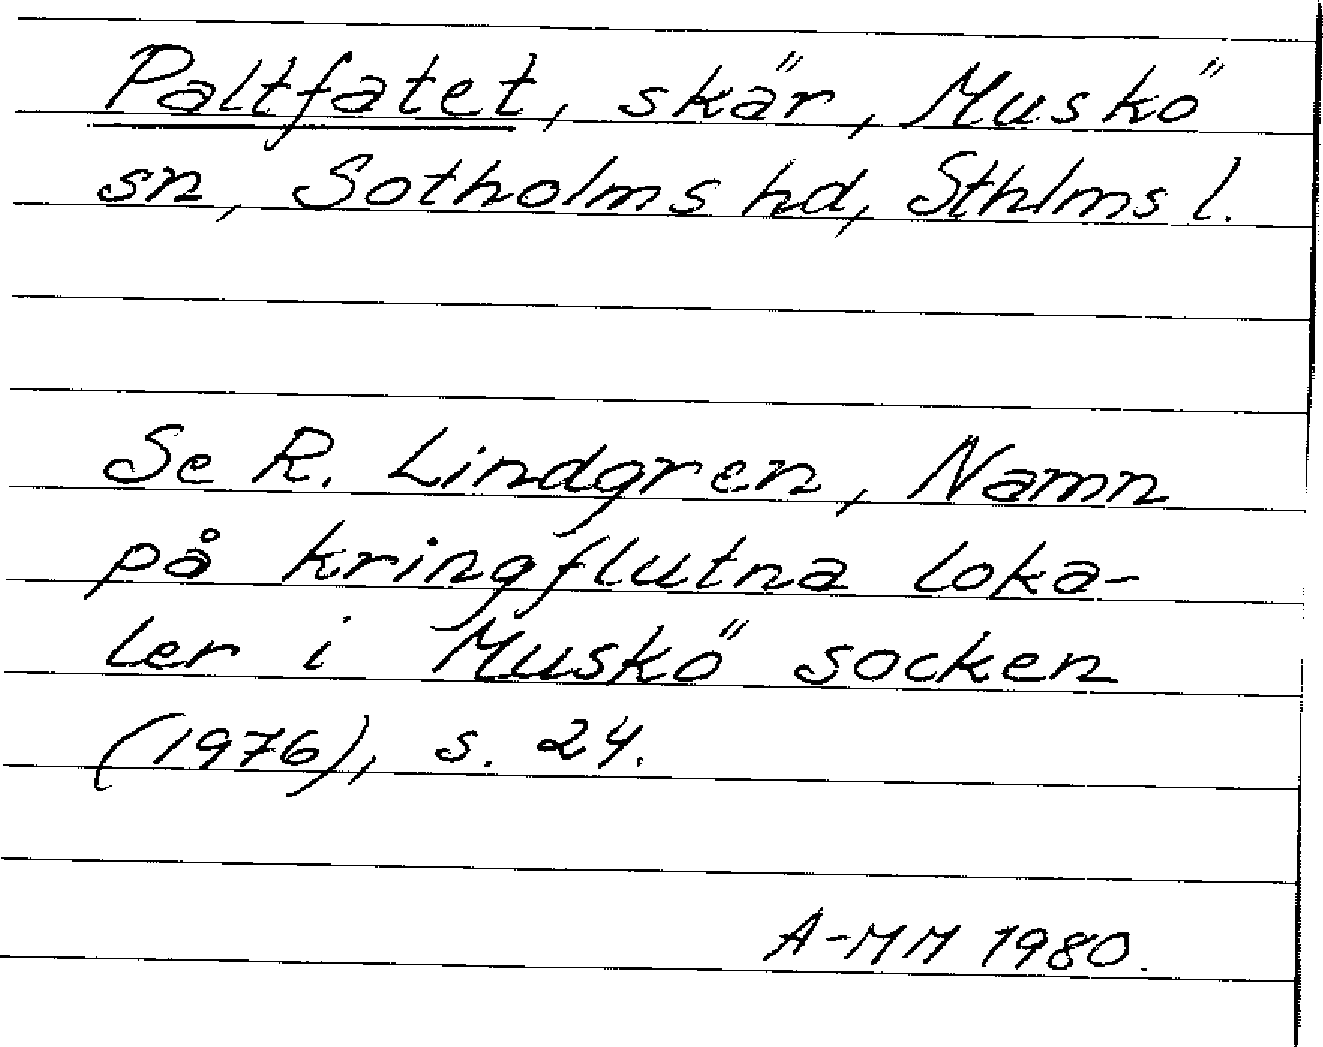 Paltfatet, skär, Muskö
sn, Sotholms hd, Sthlms l.
Se R. Lindgren, Namn
på kringflutna loka-
ler i Muskö socken
(1976), s. 24.
A-MM 1980.